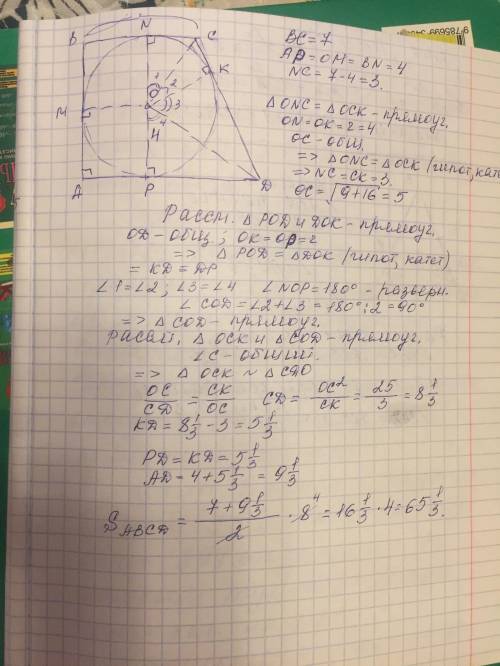 B N C
K
M O 1 2 3
4 4
A P D
BC = 7
AP = OM = BN = 4
NC = 7 - 4 = 3.
△ONC = △OCK - прямоуг.
ON = OK = r = 4
OC - общ.
=> △ONC = △OCK (гипот, катет)
=> NC = CK = 3.
OC = √9+16 = 5
Рассм. △POD и DOK - прямоуг.
OD - общ; OK = OP = r
=> △POD = △DOK (гипот, катет)
= KD = DP
∠1 = ∠2, ∠3 = ∠4 ∠NOP = 180° - разверн.
∠COD = ∠2 + ∠3 = 180° : 2 = 90°
=> △COD - прямоуг.
Рассм. △OCK и △COD - прямоуг.
∠C - общий.
=> △OCK ~ △CDO
OC/CD = CK/OC CD = OC²/CK = 25/3 = 8 1/3
KD = 8 1/3 - 3 = 5 1/3
PD = KD = 5 1/3
AD = 4 + 5 1/3 = 9 1/3
S ABCD = (7 + 9 1/3)/2 · 8 4 = 16 1/3 · 4 = 65 1/3.